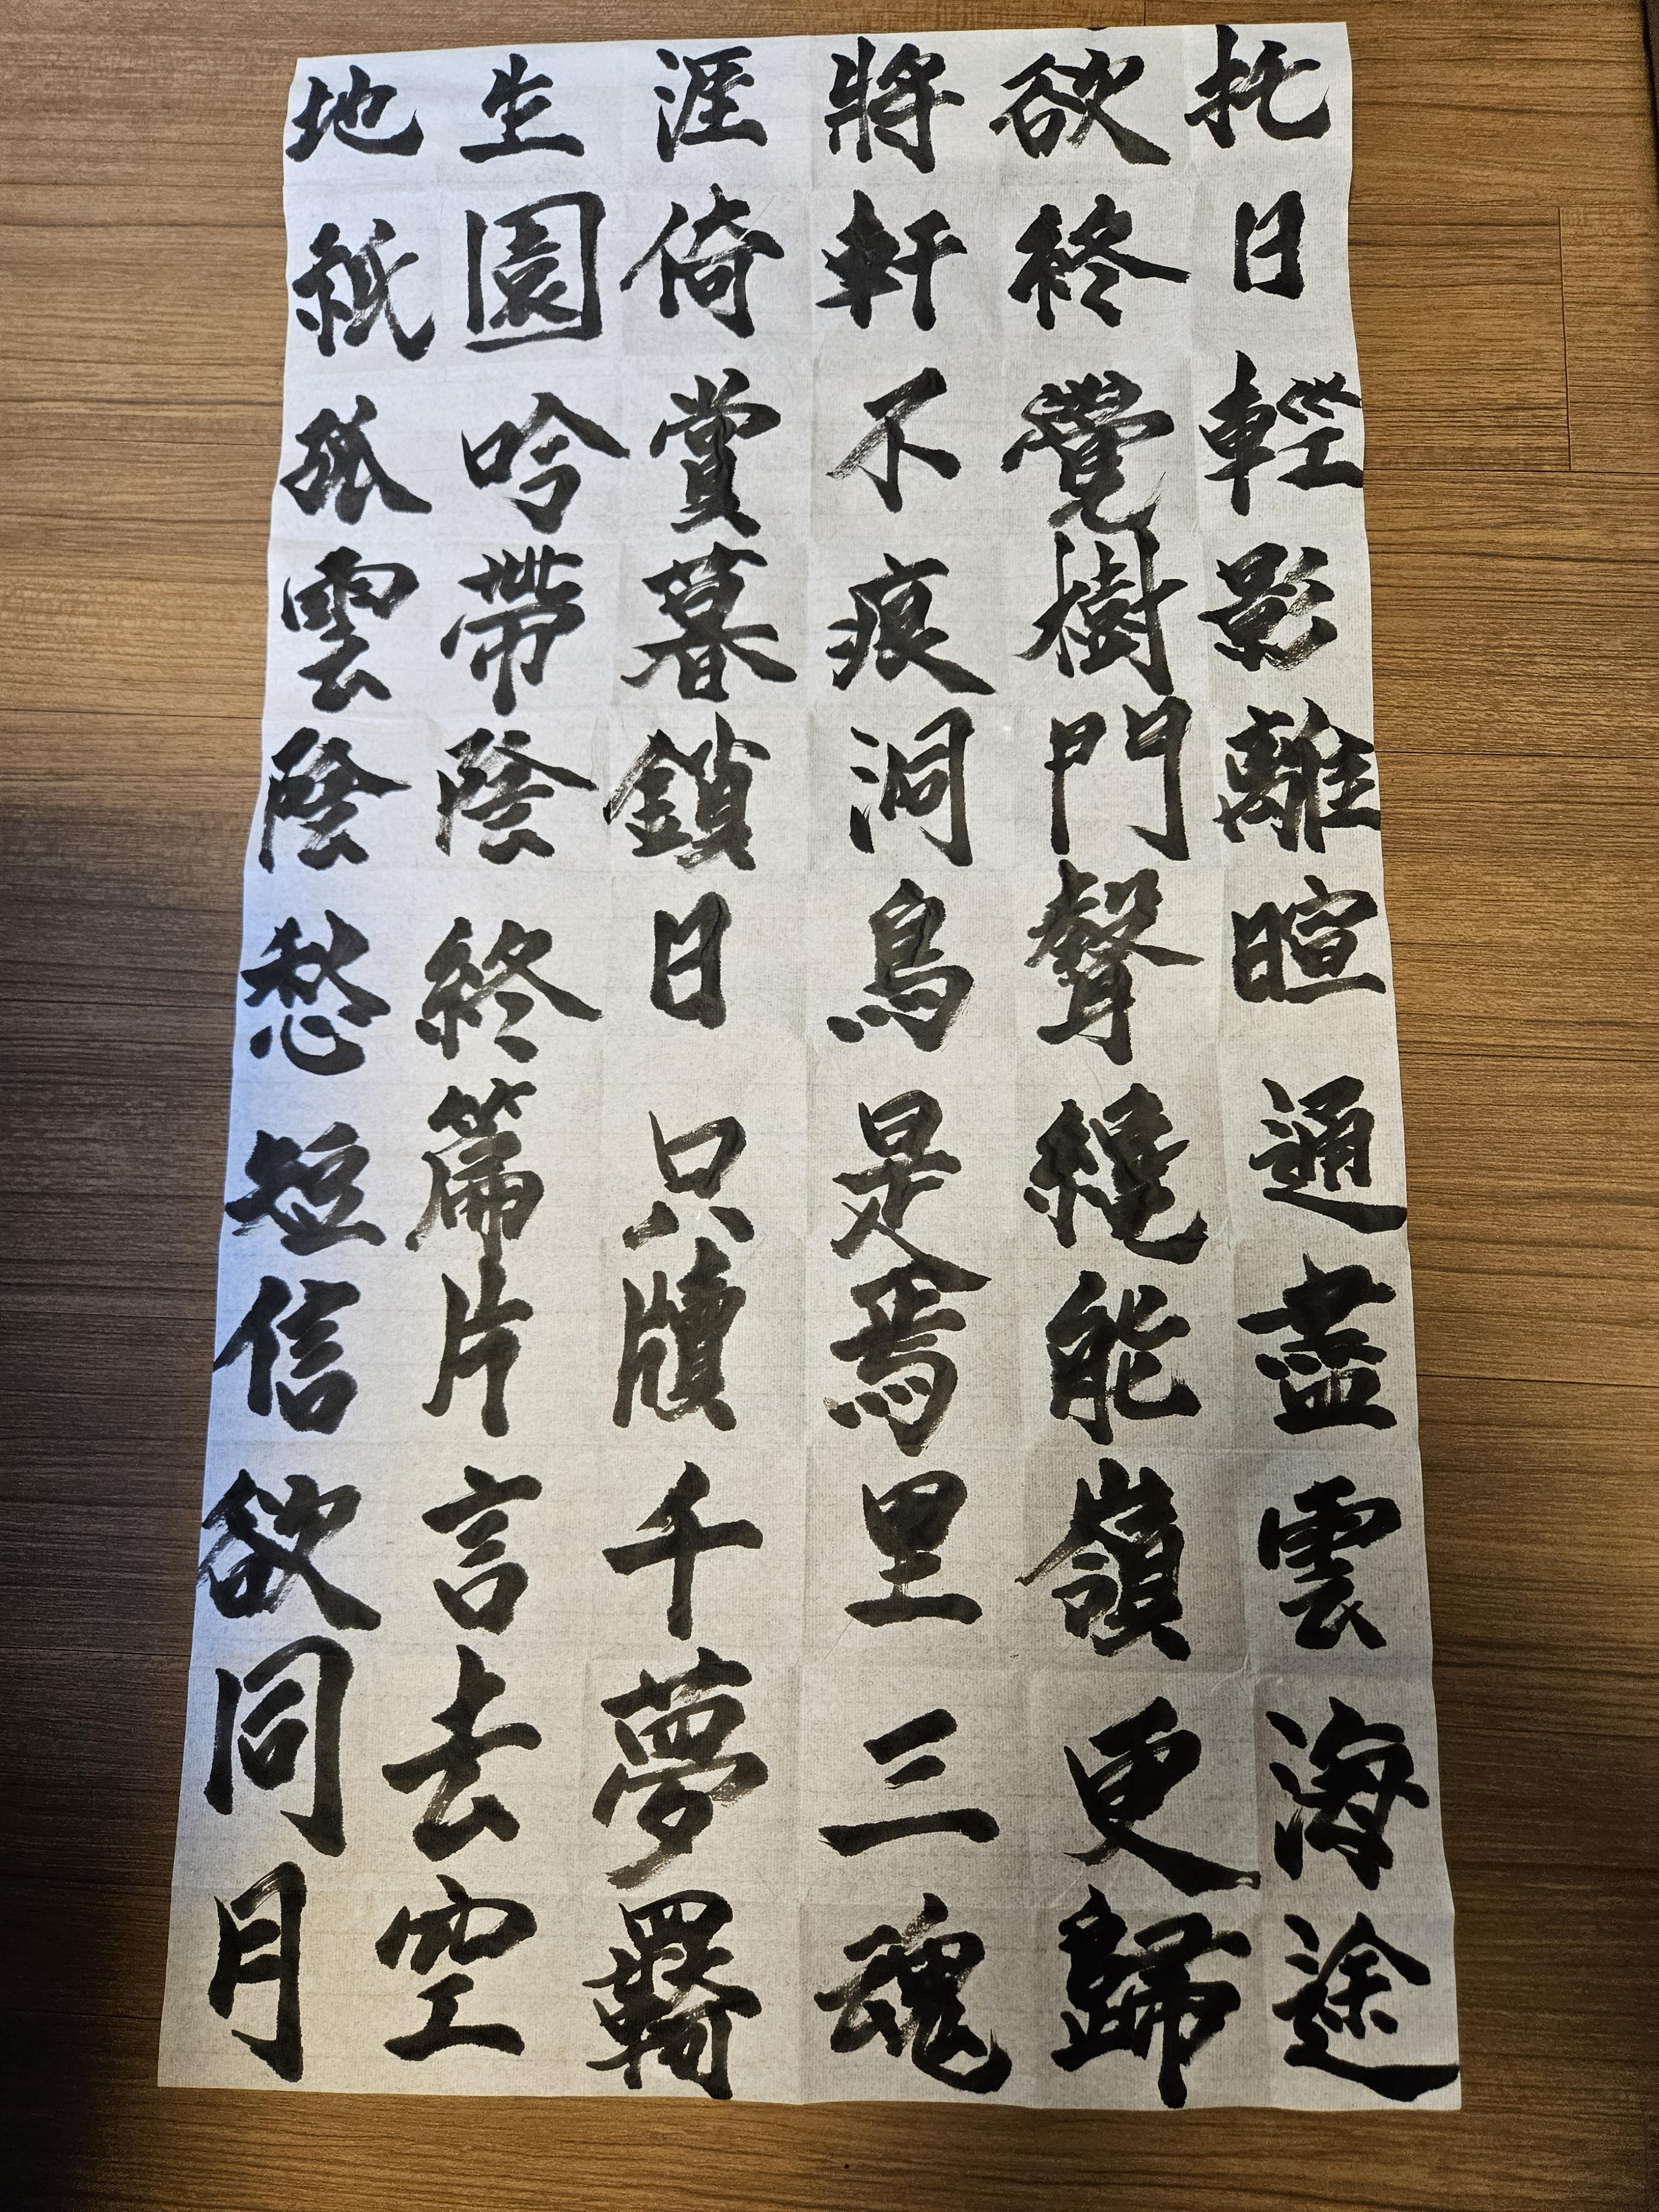 托日輕影離暄通盡雲海途
欲終覺樹門聲繞能嶺更歸
將軒不痕洞鳥是焉里三魂
涯倚賞暮鎖日只牘千夢羇
生園吟帶陰終篇片言去空
地祇孤雲陰愁短信欲同月